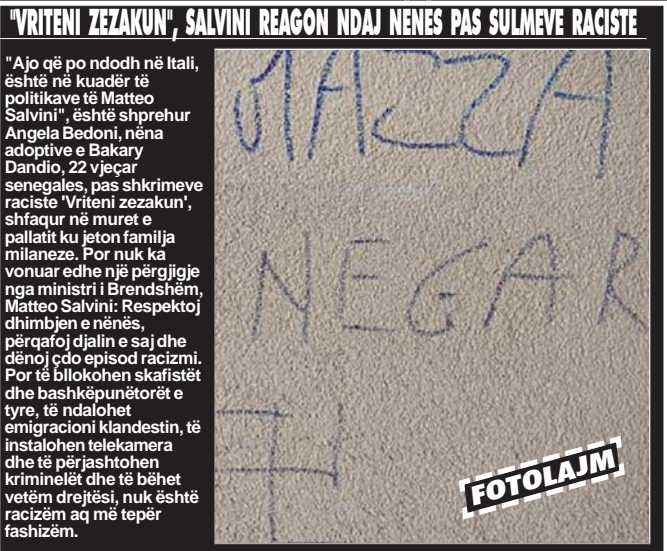 "VRITENI ZEZAKUN", SALVINI REAGON NDAJ NENES PAS SULMEVE RACISTE
"Ajo që po ndodh në Itali,
është në kuadër të
politikave të Matteo
Salvini", është shprehur
Angela Bedoni, nëna
adoptive e Bakary
Dandio, 22 vjeçar
senegales, pas shkrimeve
raciste 'Vriteni zezakun',
shfaqur në muret e
pallatit ku jeton familja
milaneze. Por nuk ka
vonuar edhe një përgjigje
nga ministri i Brendshëm,
Matteo Salvini: Respektoj
dhimbjen e nënës,
përqafoj djalin e saj dhe
dënoj çdo episod racizmi.
Por të bllokohen skafistët
dhe bashkëpunëtorët e
tyre, të ndalohet
emigracioni klandestin, të
instalohen telekamera
dhe të përjashtohen
kriminelët dhe të bëhet
vetëm drejtësi, nuk është
racizëm aq më tepër
fashizëm.
MAZZA
NEGAR
FOTOLAJM